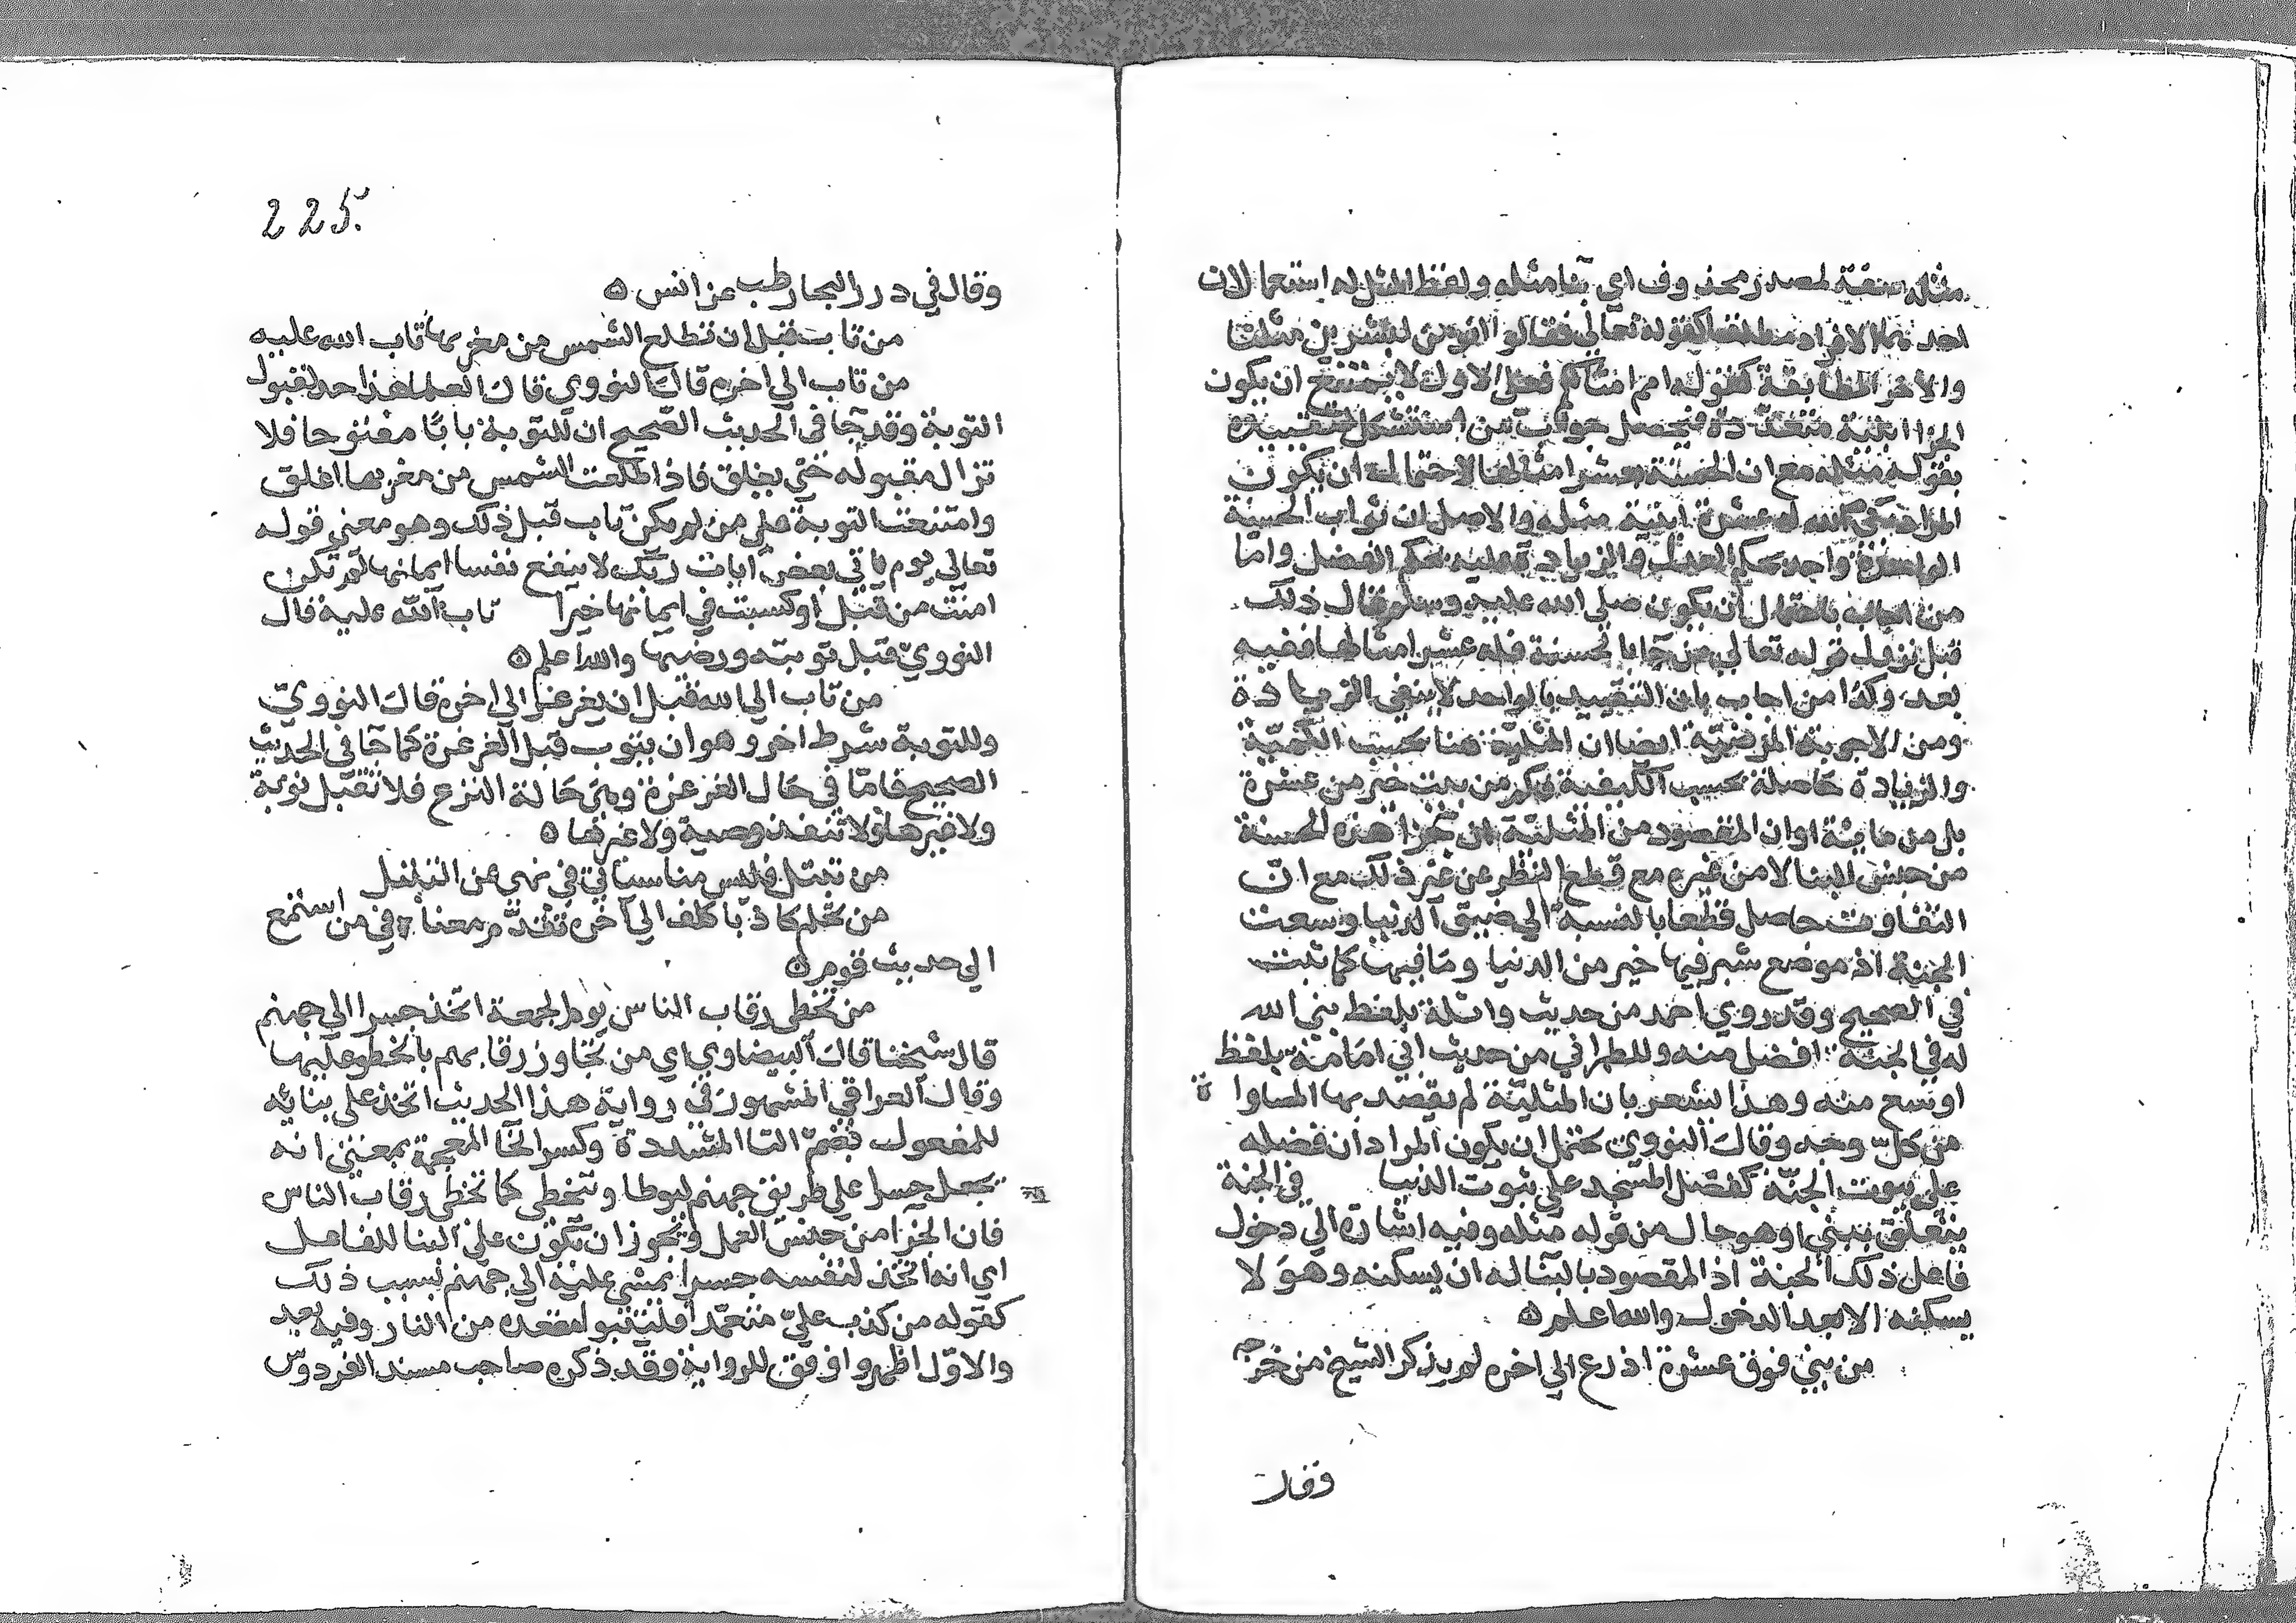 مثله صفة لمصدر محذوف اي بنا مثله ولفظ المثل له استعمالان
احدهما الافراد مطلقا كقوله تعالي فقالوا انؤمن لبشرين مثلنا
والاخر المطابقة كقوله امم امثالكم فعلي الاول لا يمتنع ان يكون
الجزا ابنية متعددة فيحصل جواب من استشكل تقييده
بقوله مثله مع ان الحسنة بعشر امثالها لاحتمال ان يكون
المراد بني الله له عشرة ابنية مثله والاصل ان ثواب الحسنة
الواحدة واحد بحكم العدل والزيادة عليه بحكم الفضل واما
من اجاب باحتمال ان يكون صلي الله عليه وسلم قال ذلك
قبل نزول قوله تعالي من جا بالحسنة فله عشر امثالها ففيه
بعد وكذا من اجاب بان التقييد بالواحد لا ينفي الزيادة
ومن الاجوبة المرضية ايضا ان المثلية هنا بحسب الكمية
والزيادة حاصلة بحسب الكيفية فكم من بيت خير من عشرة
بل من مايئة او ان المقصود من المثلية ان جزا هذه الحسنة
من جنس البنا لا من غيره مع قطع النظر عن غير ذلك مع ان
التفاوت حاصل قطعا بالنسبة الي ضيق الدنيا وسعت
الجنة اذ موضع شبر فيها خير من الدنيا وما فيها كما ثبت
في الصحيح وقد روي احمد من حديث واثلة بلفظ بني الله
له في الجنة افضل منه وللطبراني من حديث ابي امامة بلفظ
اوسع منه وهذا يشعر بان المثلية لم يقصد بها المساواة
من كل وجه وقال النووي يحتمل ان يكون المراد ان فضله
علي بيوت الجنة كفضل المسجد علي بيوت الدنيا في الجنة
يتعلق ببني او هو حال من قوله مثله وفيه اشارة الي دخول
فاعل ذلك الجنة اذ المقصود بالبنا له ان يسكنه وهو لا
يسكنه الا بعد الدخول والله اعلم ه
من بني فوق عشرة اذرع الي اخره لم يذكر الشيخ من خرجه
وقال
225.
وقال في درر البحار طب عن انس ه
من تاب قبل ان تطلع الشمس من مغربها تاب الله عليه
من تاب الي اخره قال النووي قال العلما هذا حد لقبول
التوبة وقد جا في الحديث الصحيح ان للتوبة بابا مفتوحا فلا
تزال مقبوله حتي يغلق فاذا طلعت الشمس من مغربها اغلق
وامتنعت التوبة علي من لم يكن تاب قبل ذلك وهو معني قوله
تعالي يوم ياتي بعض ايات ربك لا ينفع نفسا ايمانها لم تكن
امنت من قبل او كسبت في ايمانها خيرا تاب الله عليه قال
النووي قبل توبته ورضيها والله اعلم ه
من تاب الي الله قبل ان يغرغر الي اخره قال النووي
وللتوبة شرط اخر وهو ان يتوب قبل الغرغرة كما جا في الحديث
الصحيح فاما في حال الغرغرة وهي حالة النزع فلا تقبل توبة
ولا غيرها ولا تنفذ وصية ولا غيرها ه
من تبتل فليس منا سياتي في نهي عن التبتل
من تحلم كاذبا كلف الي اخره تقدم معناه في من استمع
الي حديث قوم ه
من تخطي رقاب الناس يوم الجمعة اتخذ جسرا الي جهنم
قال شيخنا قال البيضاوي اي من تجاوز رقابهم بالخطو عليها
وقال العراقي المشهور في رواية هذا الحديث اتخذ علي بنائه
للمفعول بضم التا المشددة وكسر الخا المعجمة بمعني انه
يجعل جسرا علي طريق جهنم ليوطا وتتخطي كما تخطي رقاب الناس
فان الجزا من جنس العمل ويجوز ان يكون علي البنا للفاعل
اي انه اتخذ لنفسه جسرا يمشي عليه الي جهنم بسبب ذلك
كقوله من كذب علي متعمدا فليتبوا مقعده من النار وفيه بعد
والاول اظهر واوفق للرواية وقد ذكره صاحب مسند الفردوس